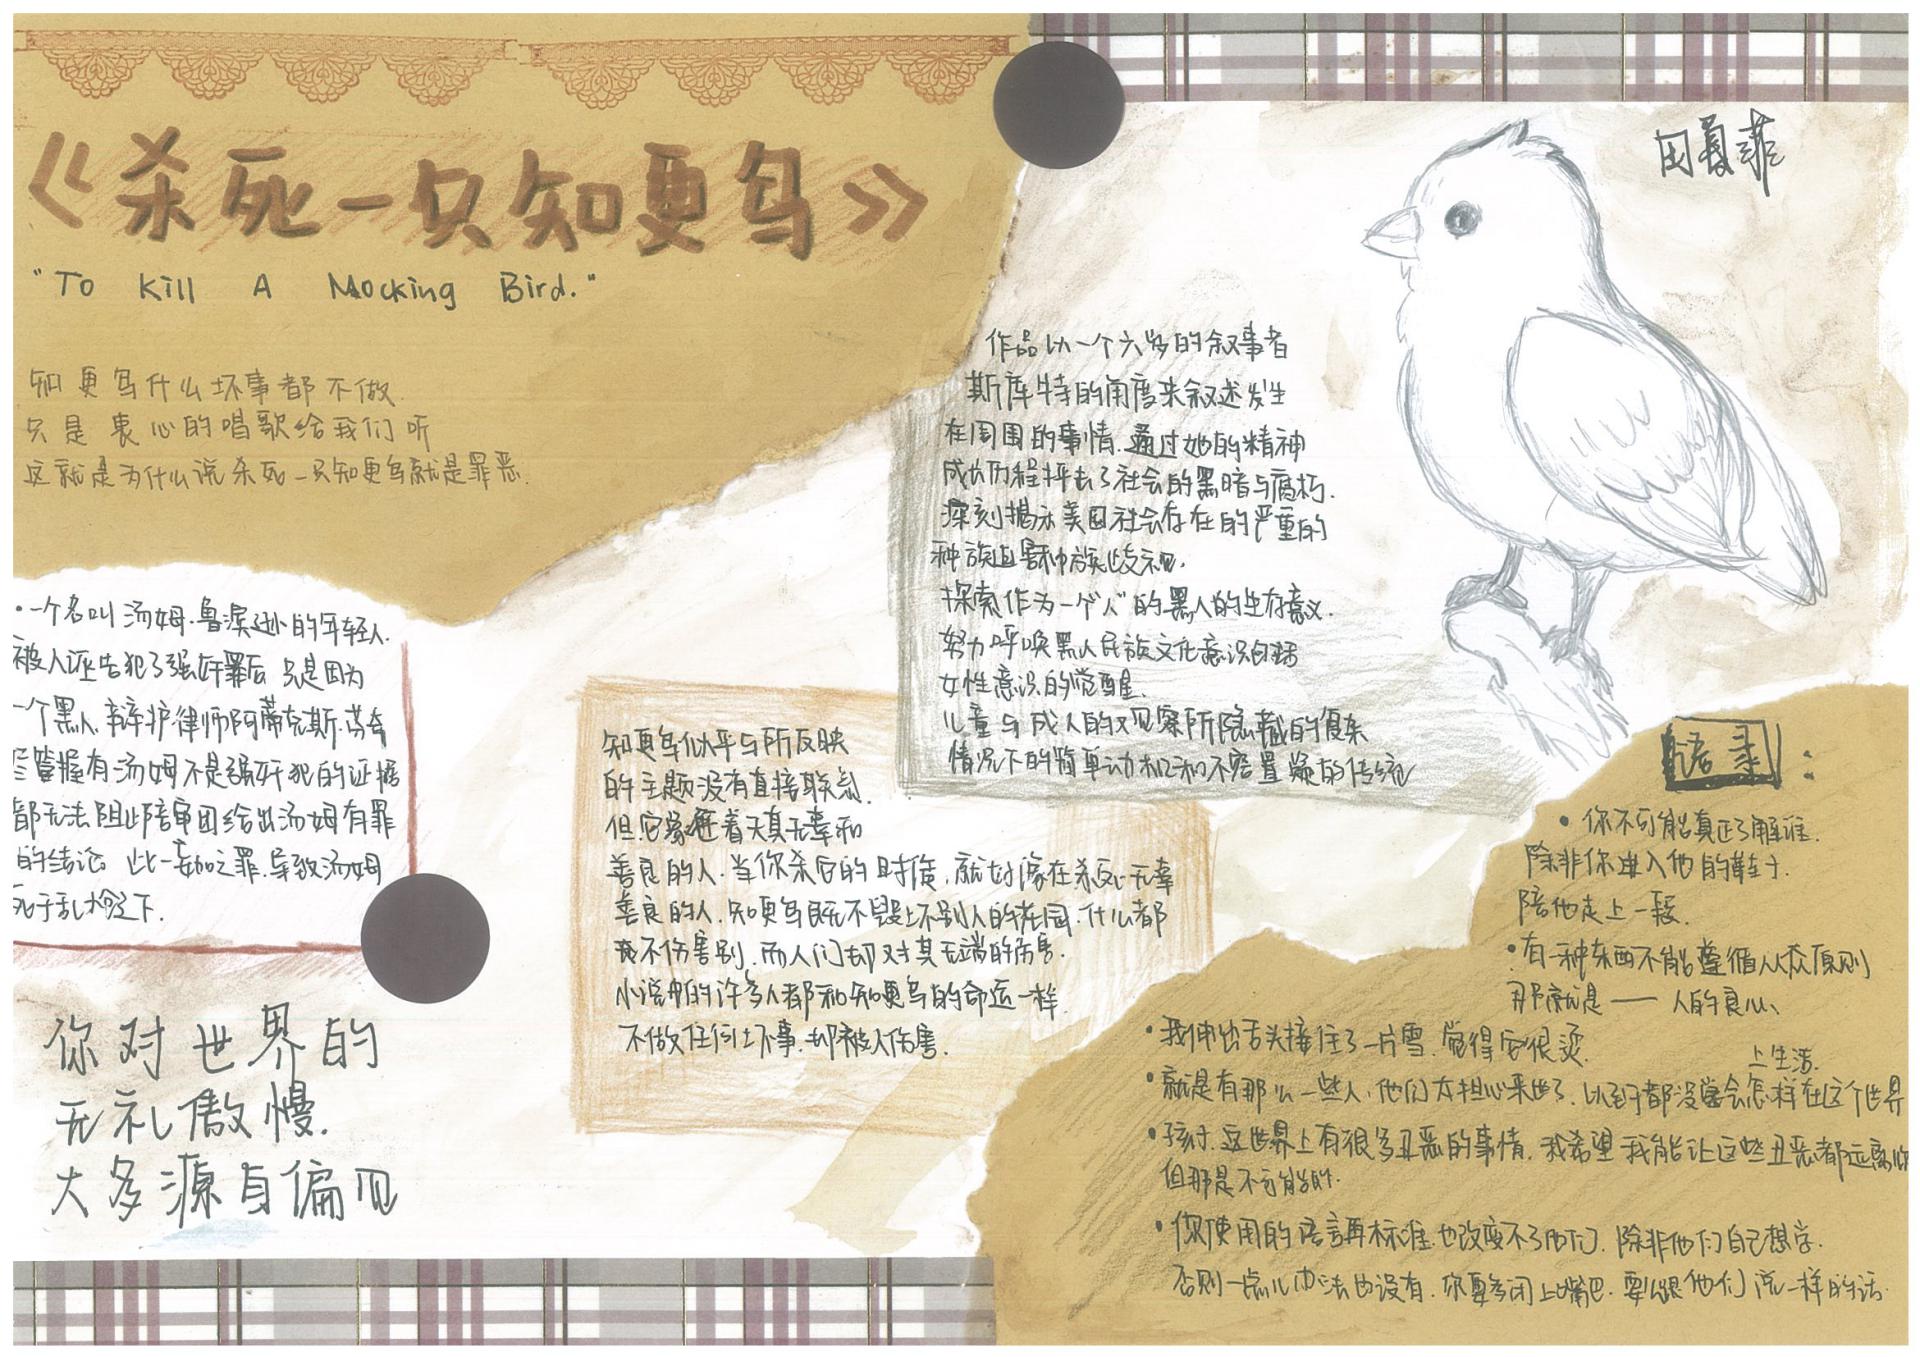 《杀死一只知更鸟》
"To Kill A Mocking Bird."
知更鸟什么坏事都不做.
只是衷心的唱歌给我们听
这就是为什么说杀死一只知更鸟就是罪恶.
作品以一个六岁的叙事者
斯库特的角度来叙述发生
在周围的事情.通过她的精神
成长历程抨击了社会的黑暗与腐朽.
深刻揭示美国社会存在的严重的
种族迫害种族歧视.
探索作为一个"人"的黑人的生存意义.
努力呼唤黑人民族文化意识回归
女性意识的觉醒.
儿童与成人的观察所隐藏的复杂
情况下的简单动机和不容置疑的传统
·一个名叫汤姆.鲁滨逊的年轻人.
被人诬告犯了强奸罪后 只是因为
一个黑人.辩护律师阿蒂克斯.芬奇
尽管握有汤姆不是强奸犯的证据
都无法阻止陪审团给出汤姆有罪
的结论 此一妄加之罪.导致汤姆
死于乱枪之下.
你对世界的
无礼傲慢.
大多源自偏见
知更鸟似乎与所反映
的主题没有直接联系.
但它象征着天真无辜和
善良的人.当你杀它的时候,就好像在杀死无辜
善良的人.知更鸟既不毁坏别人的花园.什么都
不伤害别.而人们却对其无端的伤害.
小说中的许多人都和知更鸟的命运一样.
不做任何坏事.却被人伤害.
语录:
• 你不可能真正了解谁.
除非你进入他的鞋子.
陪他走上一段.
•有一种东西不能遵循从众原则
那就是——人的良心、
•我伸出舌头接住了一片雪.觉得它很烫.
•就是有那么一些人,他们太担心来世了.以至于都没学会怎样在这个世界
上生活.
•孩子.这世界上有很多丑恶的事情.我希望我能让这些丑恶都远离你
但那是不可能的.
•你使用的语言再标准.也改变不了他们.除非他们自己想学.
否则一点儿办法也没有.你要么闭上嘴巴.要么跟他们说一样的话.